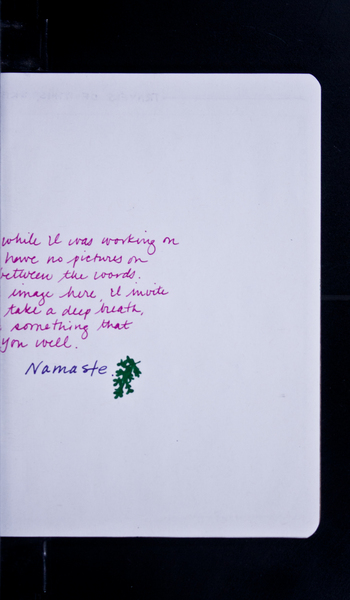 while I was working on
have no pictures on
between the words.
image here, I invite
take a deep breath,
something that
you well.
Namaste